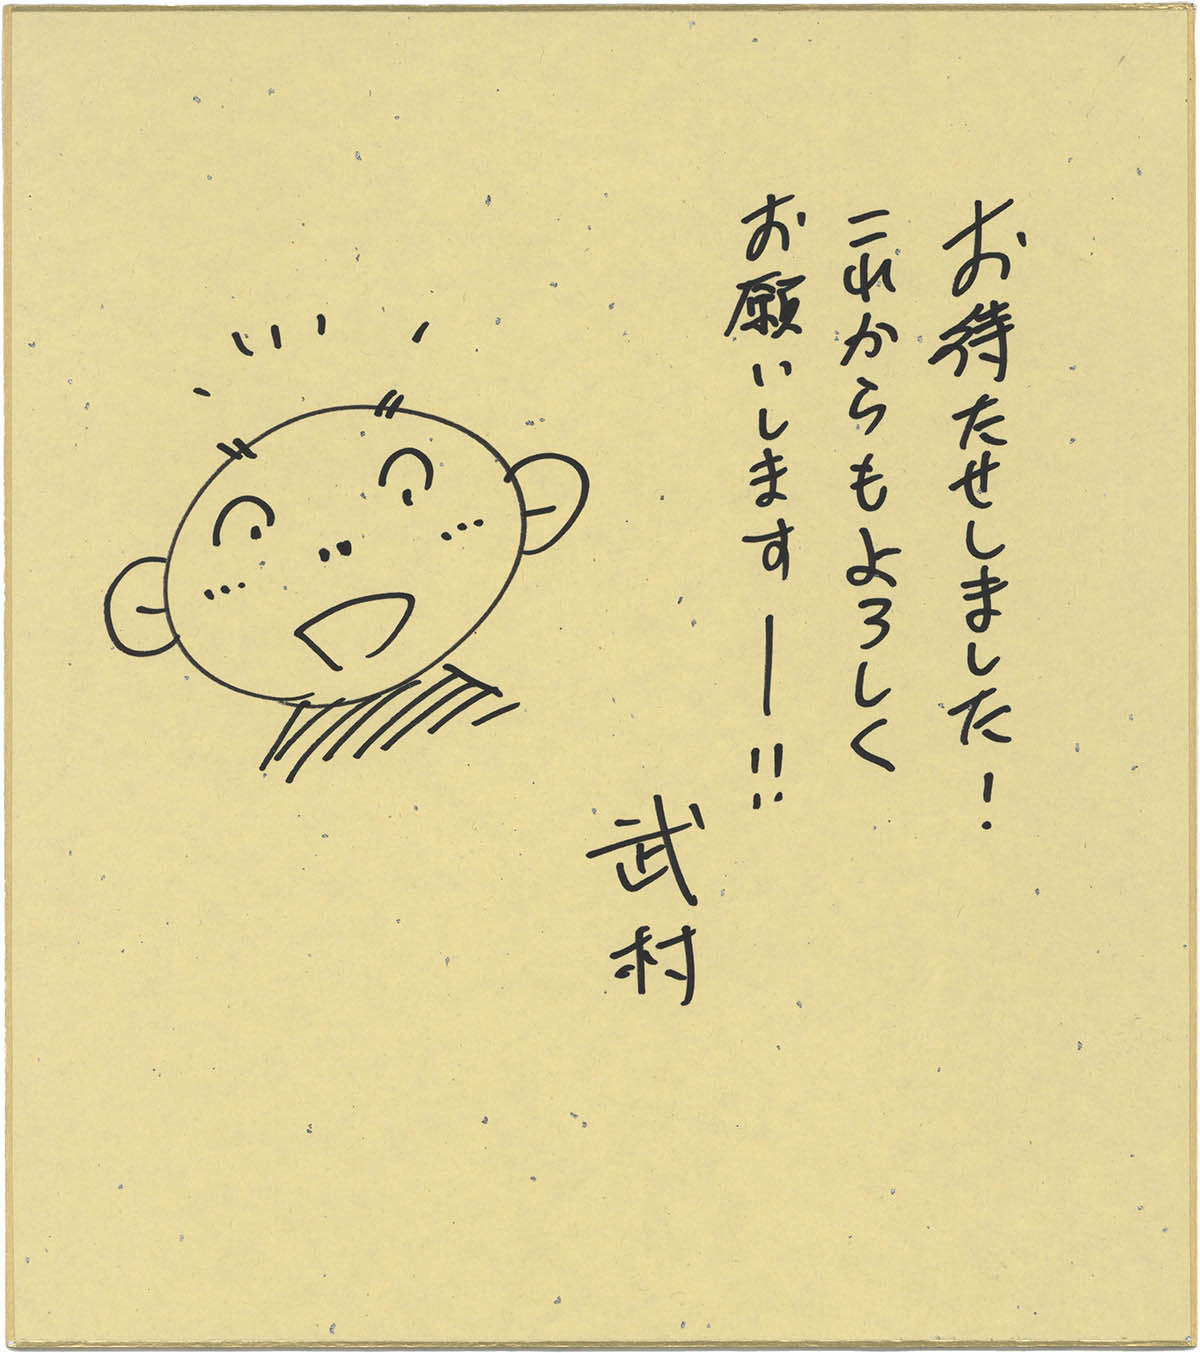 お待たせしました!
これからもよろしく
お願いしますー!!
武村